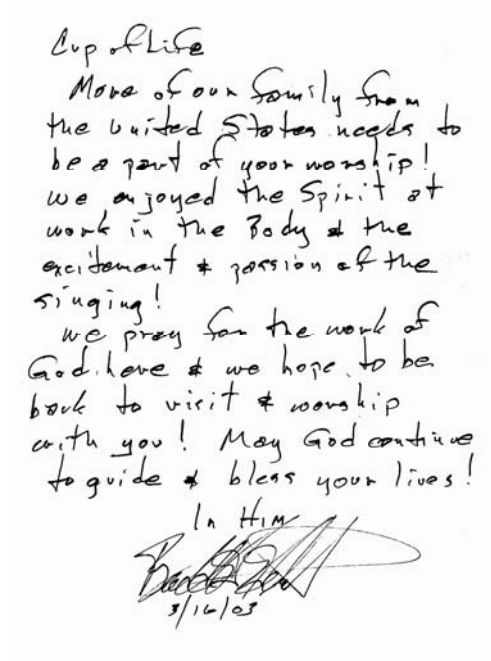 Cup of Life
More of our family from
the United States needs to
be a part of your worship!
We enjoyed the Spirit at
work in the Body & the
excitement & passion of the
singing!
We pray for the work of
God here & we hope to be
back to visit & worship
with you! May God continue
to guide & bless your lives!
In Him
3/16/03